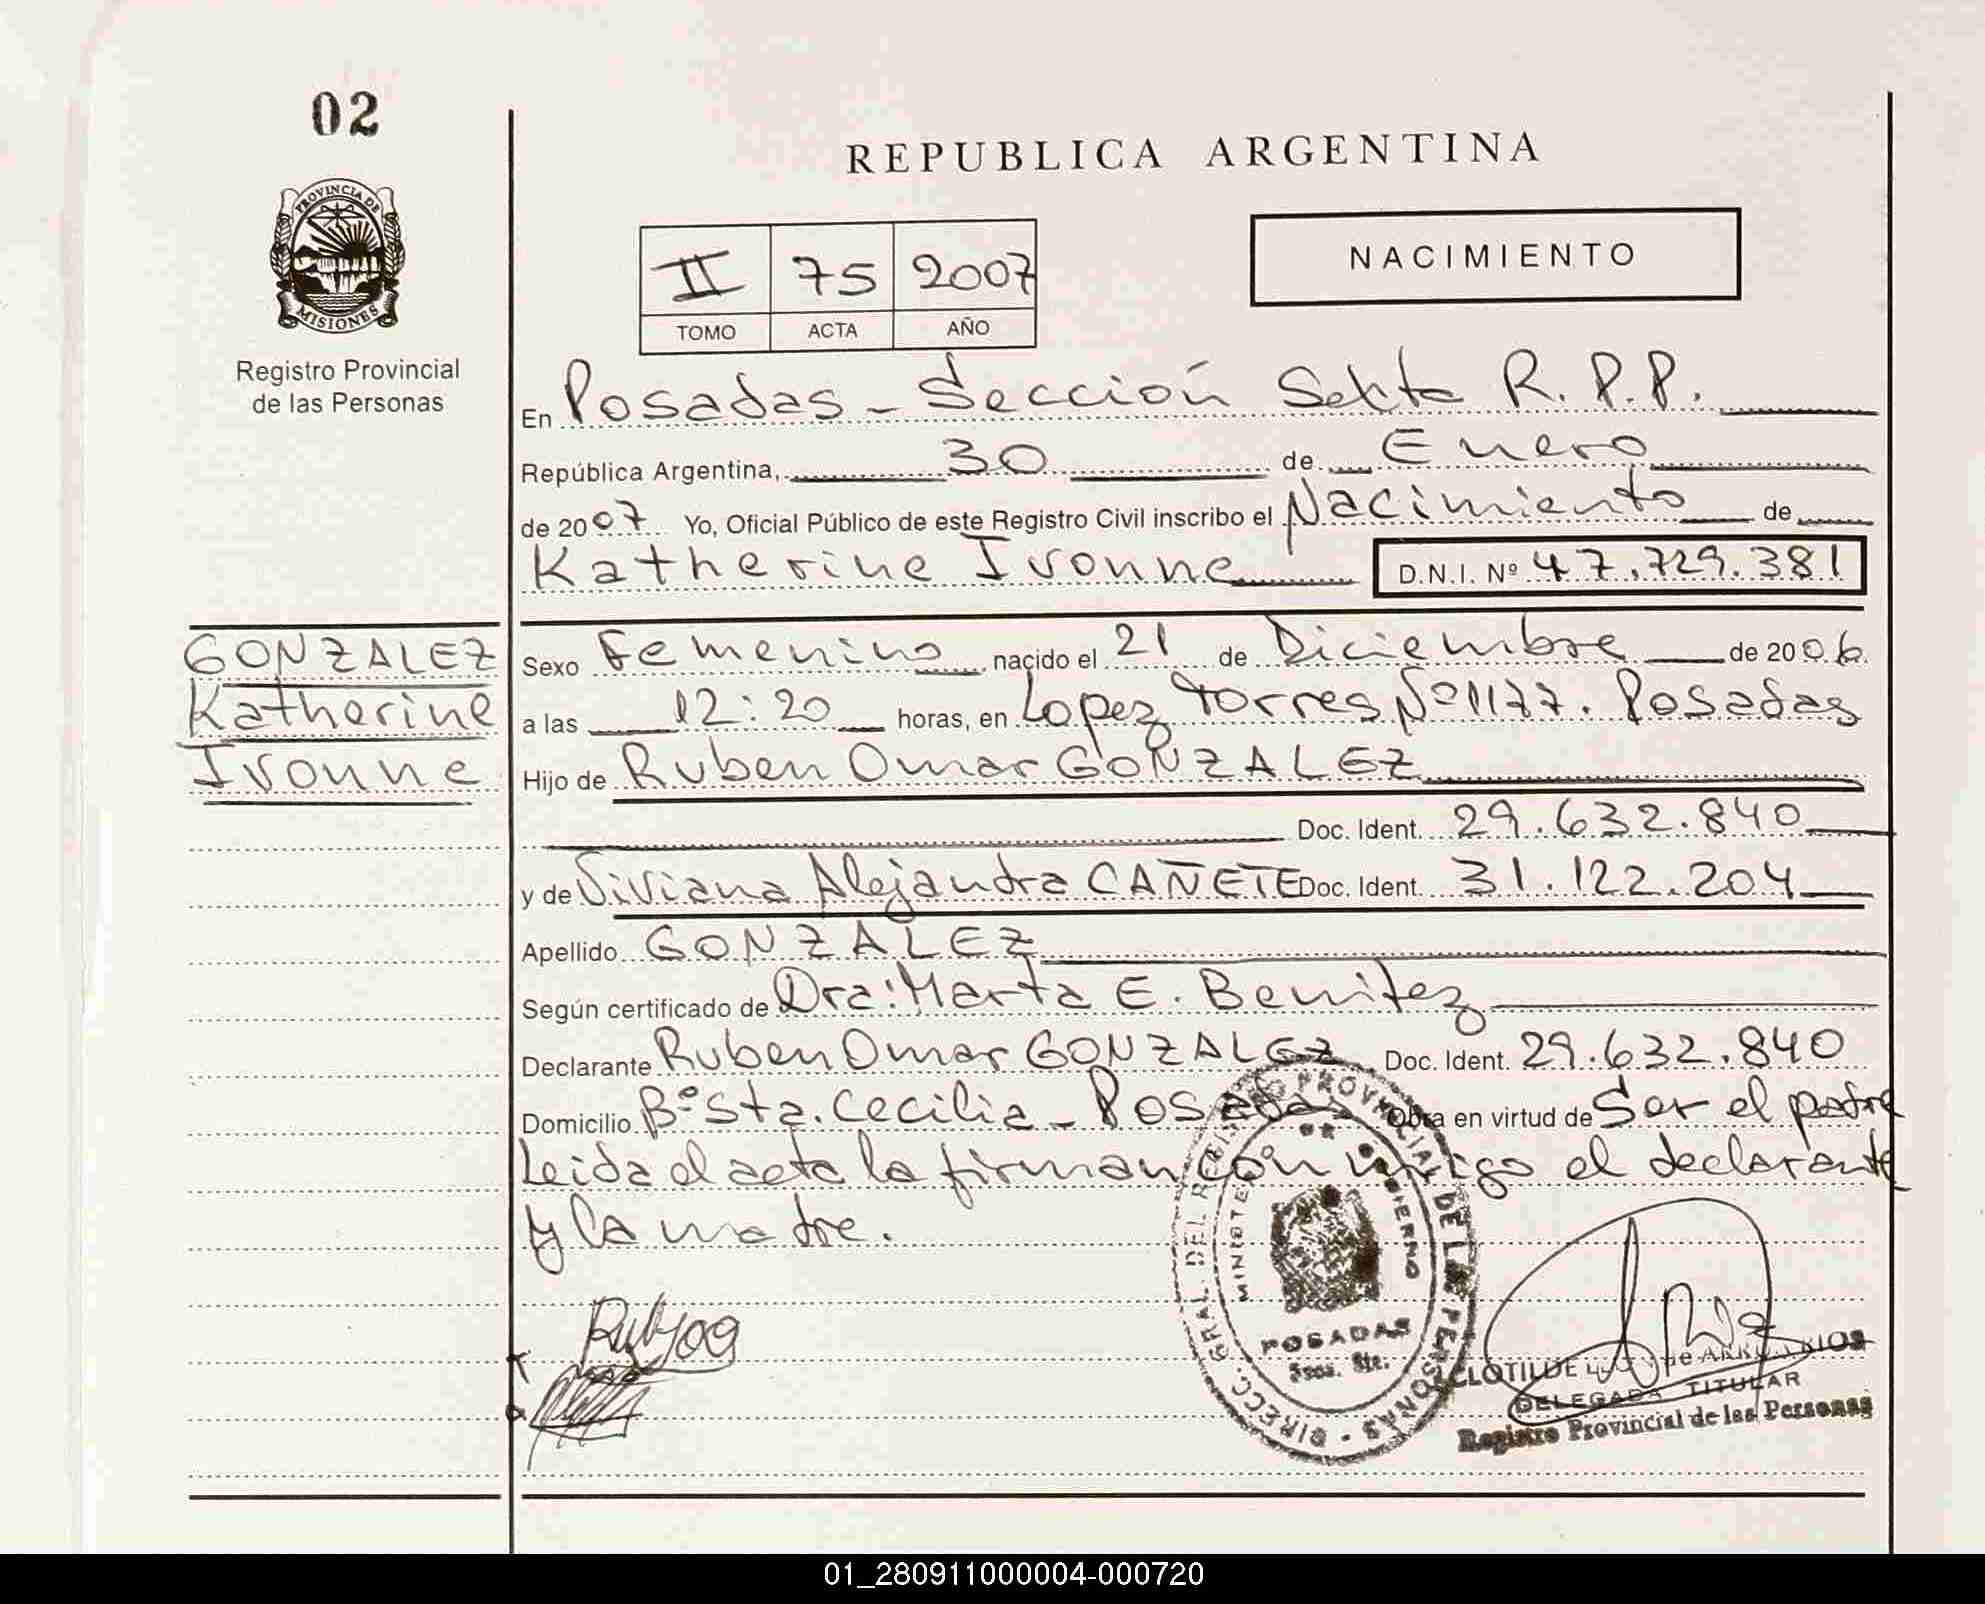 02
REPUBLICA ARGENTINA
PROVINCIA DE
MISIONES
Registro Provincial
de las Personas
II 75 2007
TOMO ACTA AÑO
NACIMIENTO
En Posadas - Sección Sexta R.P.P.
República Argentina, 30 de Enero
de 2007 Yo, Oficial Público de este Registro Civil inscribo el Nacimiento de
Katherine Ivonne D.N.I. Nº 47.729.381
GONZALEZ
Katherine
Ivonne
Sexo Femenino nacido el 21 de Diciembre de 2006.
a las 12:20 horas, en Lopez Torres Nº 1177. Posadas
Hijo de Ruben Omar GONZALEZ
Doc. Ident. 29.632.840
y de Viviana Alejandra CAÑETE Doc. Ident. 31.122.204
Apellido GONZALEZ
Según certificado de Dra: Marta E. Benitez
Declarante Ruben Omar GONZALEZ Doc. Ident. 29.632.840
Domicilio Bº Sta. Cecilia - Posadas Obra en virtud de Ser el padre
Leida el acta la firman conmigo el declarante
y la madre.
DIRECC. GRAL. DEL REGISTRO PROVINCIAL DE LAS PERSONAS
MINISTERIO DE GOBIERNO
POSADAS
Secc. 6ta.
CLOTILDE
DELEGADA TITULAR
Registro Provincial de las Personas
01_280911000004-000720